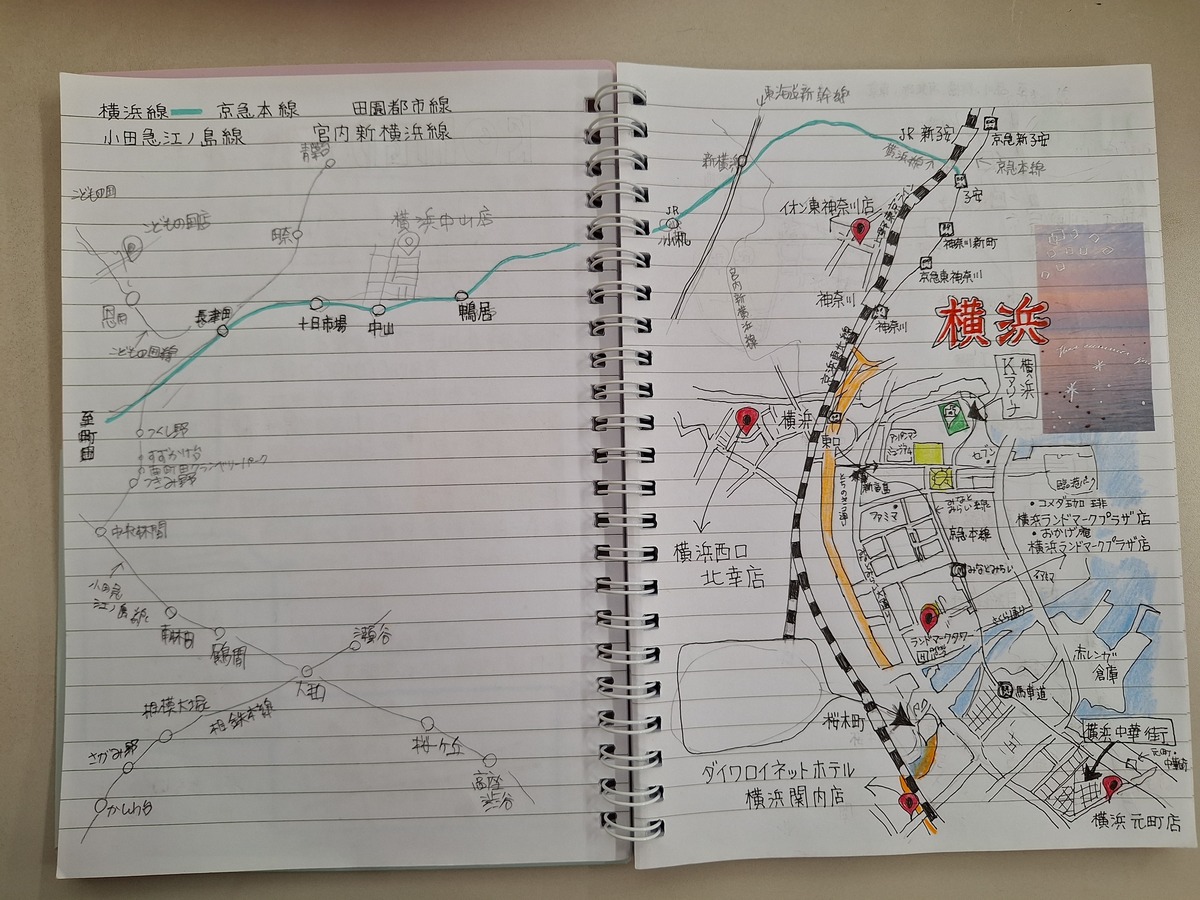 横浜線 京急本線 田園都市線
小田急江ノ島線 宮内新横浜線
青葉台
こどもの国
こどもの国店
田奈
横浜中山店
恩田
長津田
十日市場
中山
鴨居
こどもの国線
至町田
つくし野
すずかけ台
南町田グランベリーパーク
つきみ野
中央林間
小田急
江ノ島線
南林間
鶴間
瀬谷
大和
相模大塚
相鉄本線
さがみ野
かしわ台
桜ヶ丘
高座
渋谷
東海道新幹線
JR 新子安
京急新子安
新横浜
横浜線
京急本線
子安
JR
小机
イオン東神奈川店
神奈川新町
京急東神奈川
宮内新横浜線
神奈川
神奈川
横浜
横浜
Kアリーナ
横浜
東口
アンパンマン
ミュージアム
セブン
臨港パーク
新高島
とちのき通り
みなと
みらい線
ファミマ
京急本線
・コメダ珈琲
横浜ランドマークプラザ店
・おかげ庵
横浜ランドマークプラザ店
横浜西口
北幸店
みなとみらい
ファミマ
さくら通り
ランドマークタワー
赤レンガ
倉庫
馬車道
桜木町
横浜中華街
元町・
中華街
ダイワロイネットホテル
横浜関内店
横浜元町店